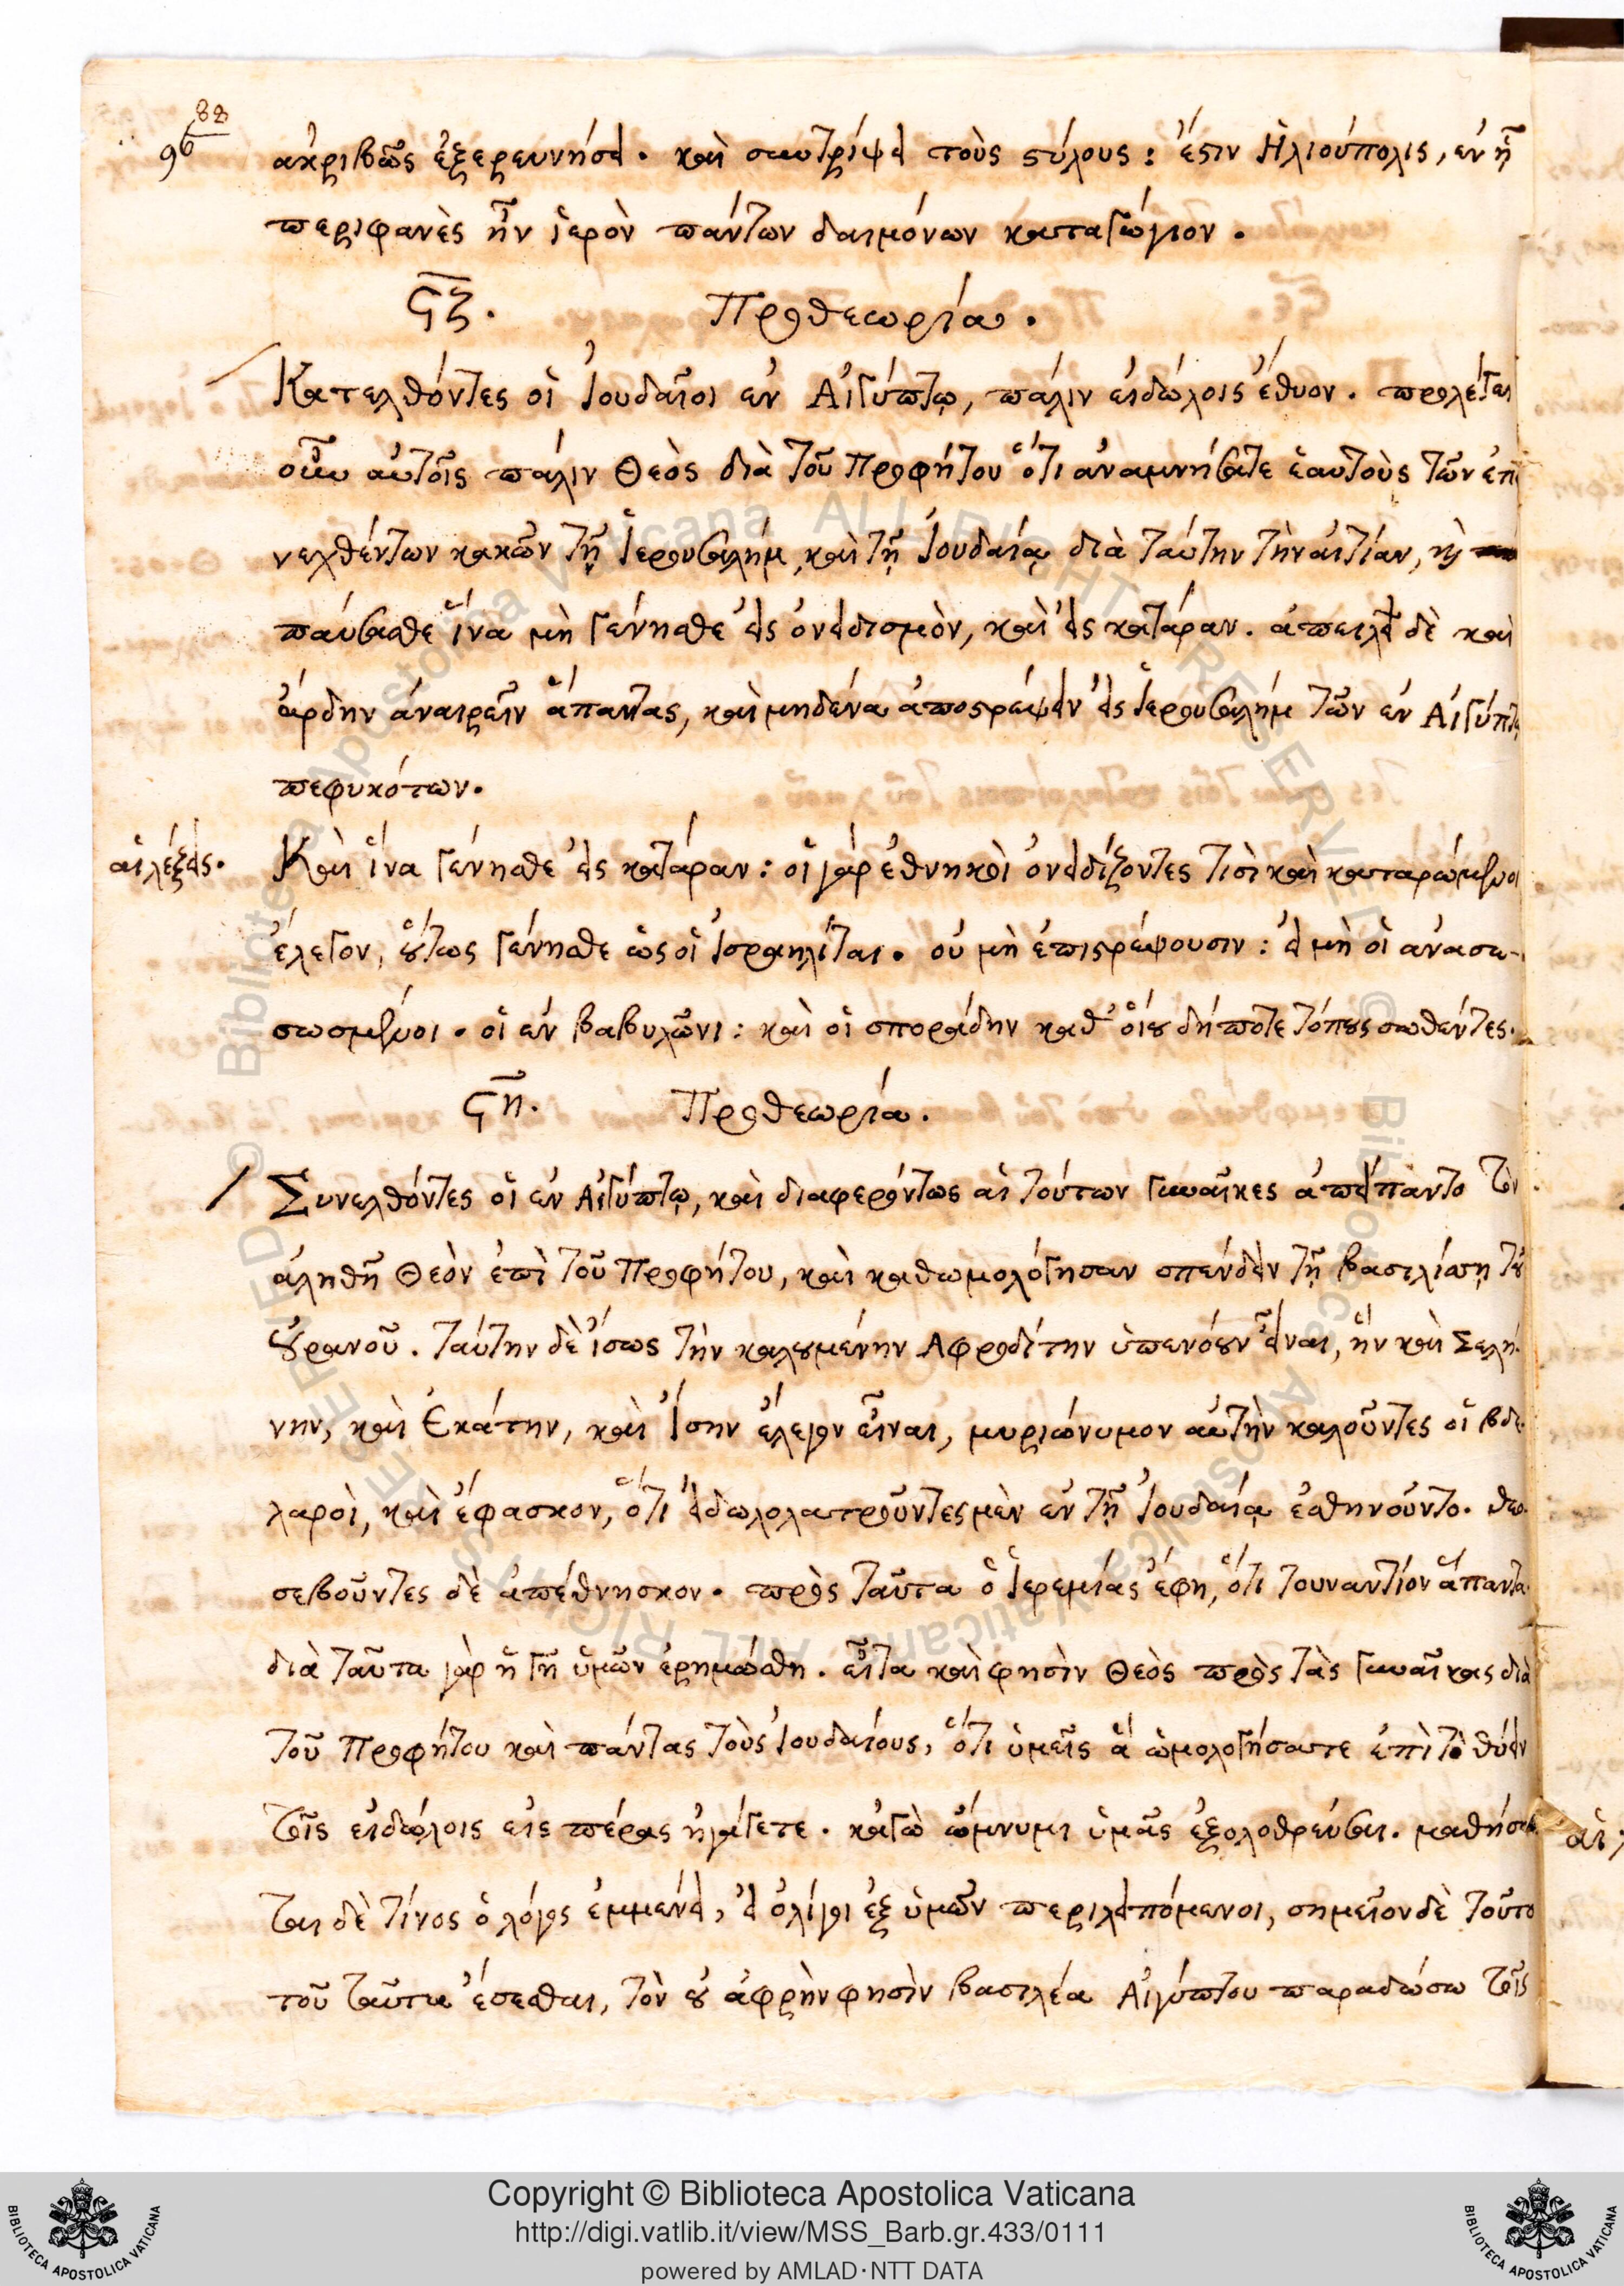 82
96
ἀκριβῶς ἐξερευνήσει. καὶ συντρίψει τοὺς στύλους: ἔστιν Ἡλιούπολις, ἐν ᾗ
περιφανὲς ἦν ἱερὸν πάντων δαιμόνων καταγώγιον.
ϛζ. Προθεωρία.
Κατελθόντες οἱ Ἰουδαῖοι ἐν Αἰγύπτῳ, πάλιν εἰδώλοις ἔθυον. προλέγει
οὖν αὐτοῖς πάλιν Θεὸς διὰ τοῦ Προφήτου ὅτι ἀναμνήσατε ἑαυτοὺς τῶν ἐπε
νεχθέντων κακῶν τῇ Ἱερουσαλήμ, καὶ τῇ Ἰουδαίᾳ διὰ ταύτην τὴν αἰτίαν, καὶ
παύσασθε ἵνα μὴ γένησθε εἰς ὀνειδισμὸν, καὶ εἰς κατάραν. ἀπειλεῖ δὲ καὶ
ἄρδην ἀναιρεῖν ἅπαντας, καὶ μηδένα ἀποστρέψειν εἰς Ἱερουσαλήμ τῶν ἐν Αἰγύπτῳ
πεφυκότων.
αἱ λέξεις. Καὶ ἵνα γένησθε εἰς κατάραν: οἱ γὰρ ἐθνηκοὶ ὀνειδίζοντες τισὶ καὶ καταρώμενοι
ἔλεγον, οὕτως γένησθε ὡς οἱ Ἰσραηλίται. οὐ μὴ ἐπιστρέψουσιν: εἰ μὴ οἱ ἀνασω-
σωσμένοι. οἱ ἐν βαβυλῶνι: καὶ οἱ σποράδην καθ' οἵου δήποτε τόπους σωθέντες.
ϛη. Προθεωρία.
Συνελθόντες οἱ ἐν Αἰγύπτῳ, καὶ διαφερόντως αἱ τούτων γυναῖκες ἀπείπαντο τὸν
ἀληθῆ Θεὸν ἐπὶ τοῦ Προφήτου, καὶ καθωμολόγησαν σπένδειν τῇ βασιλίσῃ τοῦ
Οὐρανοῦ. ταύτην δὲ ἴσως τὴν καλουμένην Αφροδίτην ὑπενόουν εἶναι, ἣν καὶ Σελή-
νην, καὶ Ἑκάτην, καὶ Ἴσην ἔλεγον εἶναι, μυριώνυμον αὐτὴν καλοῦντες οἱ βδε-
λαροὶ, καὶ ἔφασκον, ὅτι εἰδωλολατροῦντες μὲν ἐν τῇ Ἰουδαίᾳ εὐθηνοῦντο. θεο-
σεβοῦντες δὲ ἀπέθνησκον. πρὸς ταῦτα ὁ Ἱερεμίας ἔφη, ὅτι τουναντίον ἅπαντα.
διὰ ταῦτα γὰρ ἡ γῆ ὑμῶν ἐρημώθη. εἶτα καὶ φησὶν Θεὸς πρὸς τὰς γυναῖκας διὰ
τοῦ Προφήτου καὶ πάντας τοὺς Ἰουδαίους, ὅτι ὑμεῖς ἃ ὡμολογήσατε ἐπὶ τὸ θύειν
τοῖς εἰδώλοις εἰς πέρας ἠγάγετε. κἀγὼ ὤμνυμι ὑμᾶς ἐξολοθρεύσαι. μαθήσε
ται δὲ τίνος ὁ λόγος ἐμμένει, εἰ ὀλίγοι ἐξ ὑμῶν περιλειπόμενοι, σημεῖον δὲ τοῦτο
τοῦ ταῦτα ἔσεσθαι, τὸν οὐ ἀφρὴν φησὶν βασιλέα Αἰγύπτου παραδώσω τοῖς
Copyright © Biblioteca Apostolica Vaticana
http://digi.vatlib.it/view/MSS_Barb.gr.433/0111
powered by AMLAD·NTT DATA